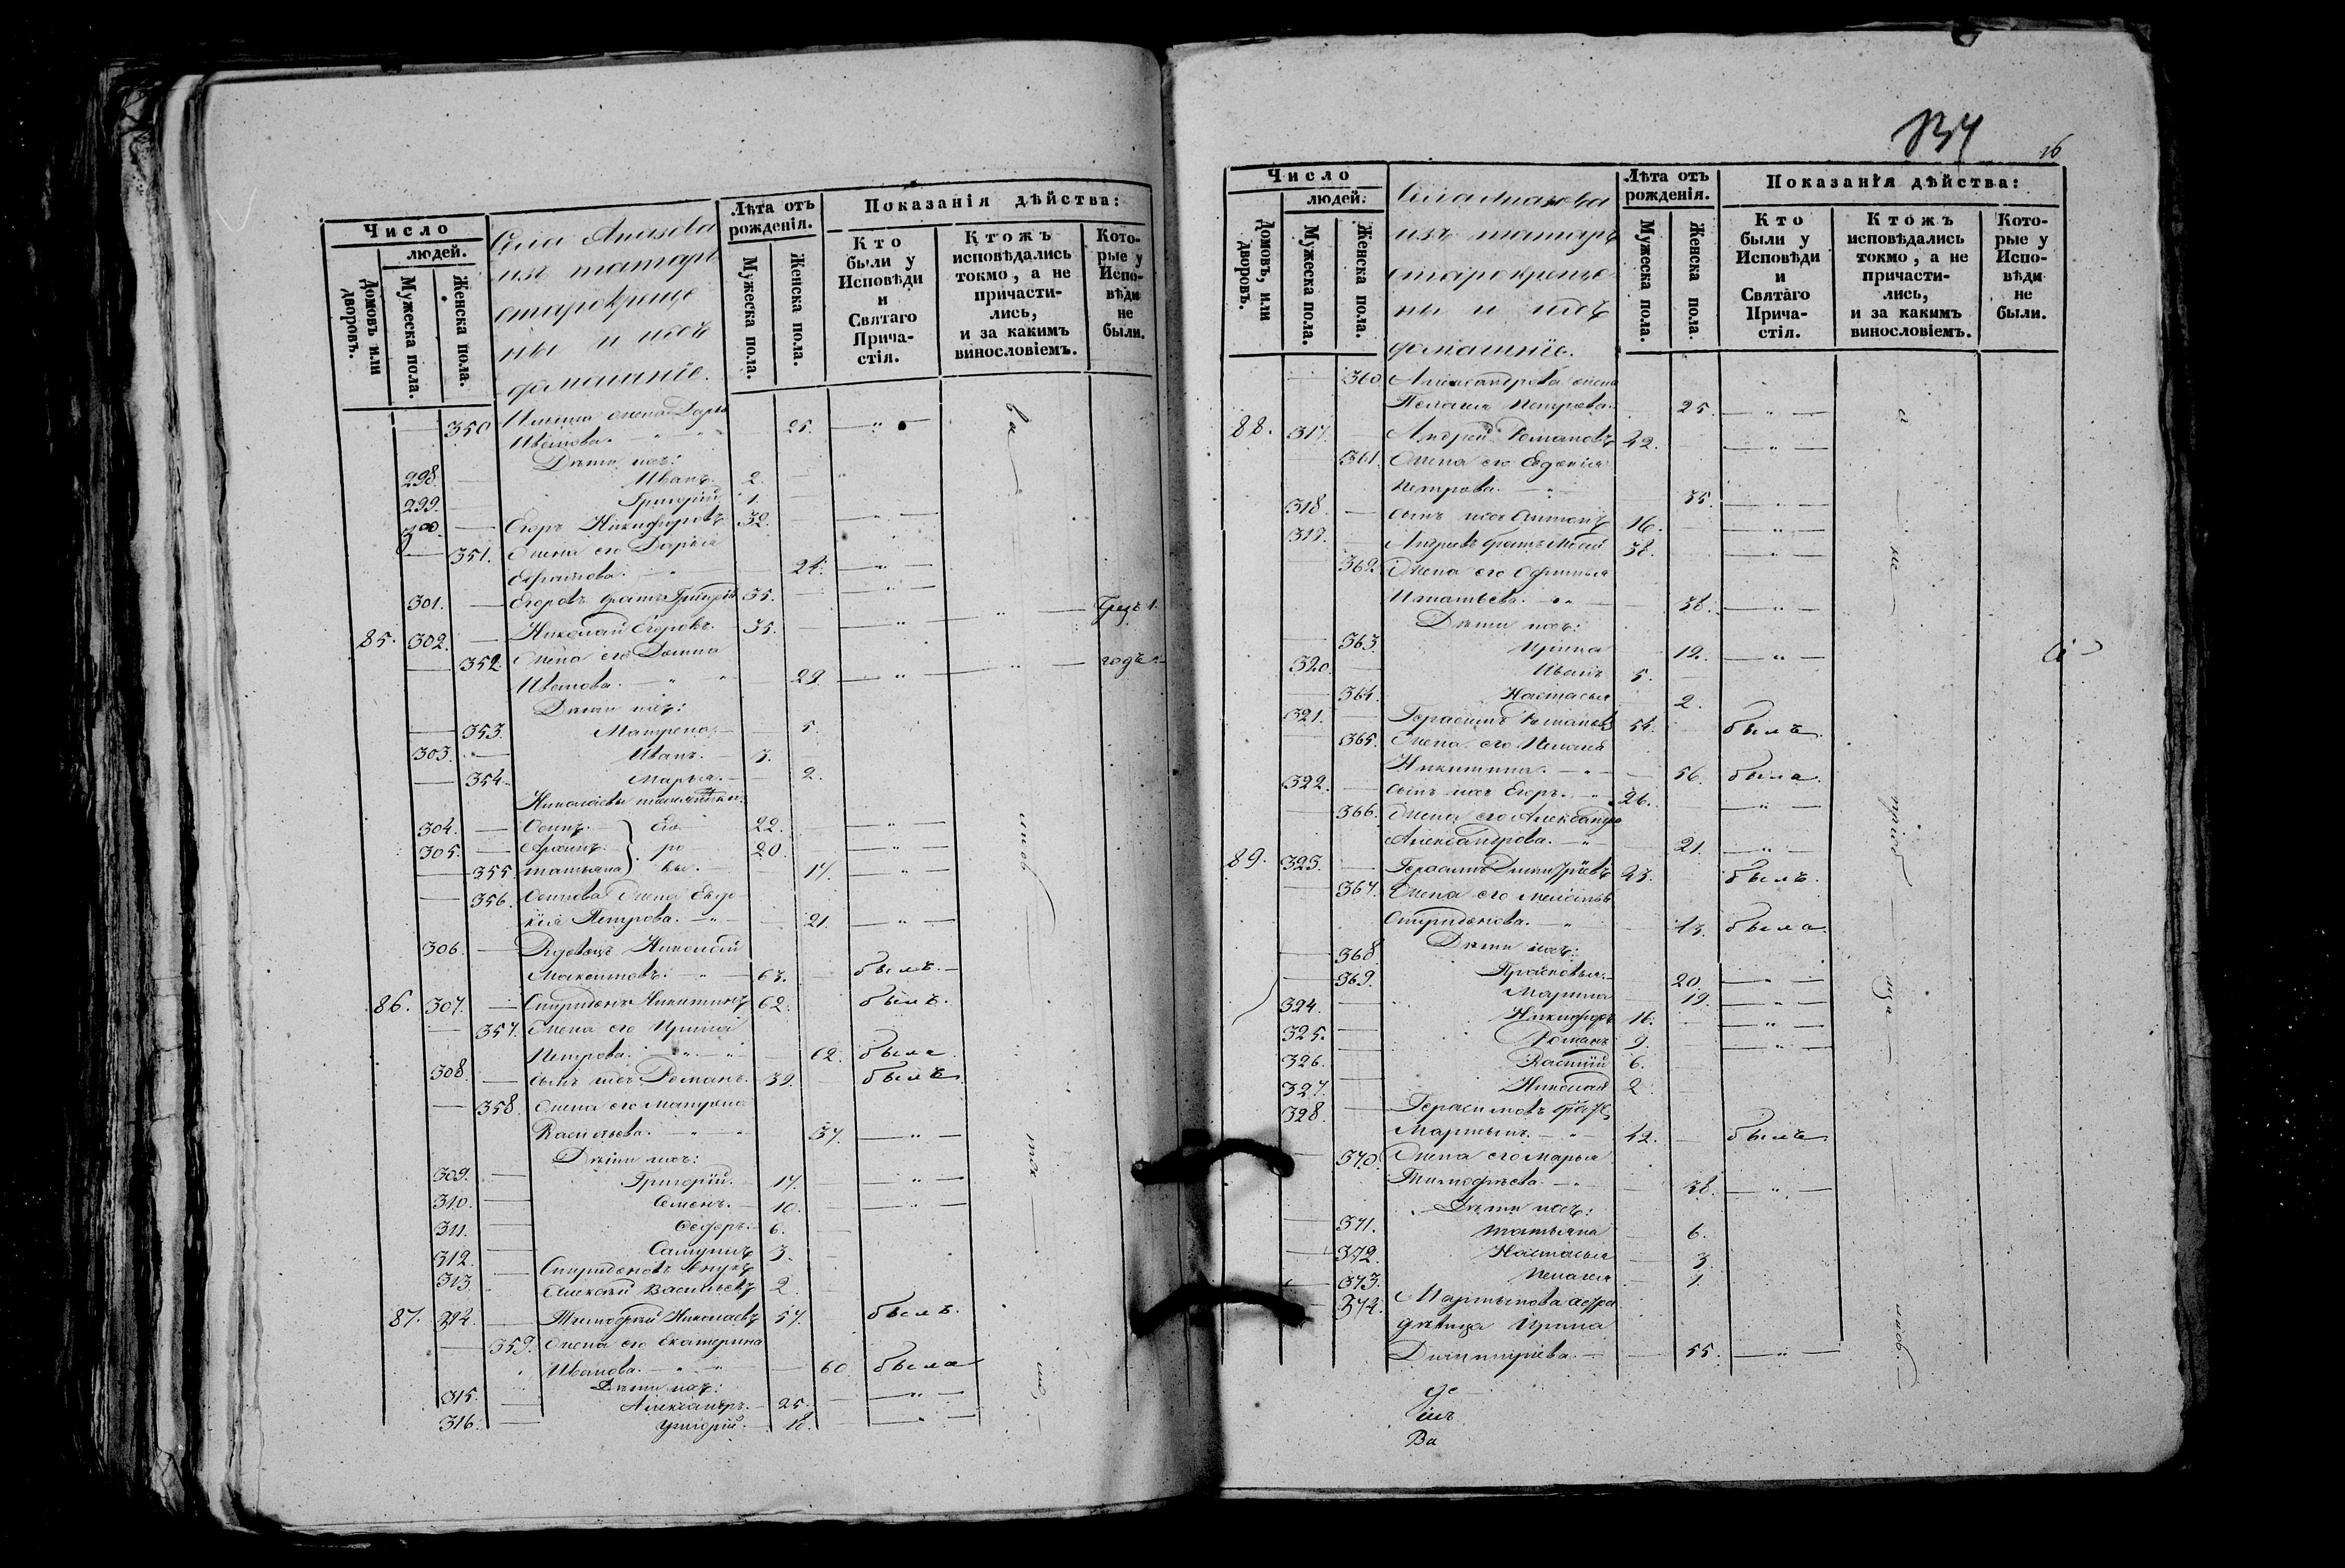 Число
людей.
Домовъ или дворовъ.
Мужеска пола.
Женска пола.
Села
изъ татаръ
старокреще
ны и ихъ
домашніе.
Лѣта отъ рожденія.
Мужеска пола.
Женска пола.
Показанія дѣйства:
Кто были у Исповѣди и Святаго Прича-стія.
Ктожъ исповѣдались токмо, а не причасти-лись, и за какимъ винословіемъ.
Кото-рые у Испо-вѣди не были.
350 жена Дарья
Иванова. 25.
Дѣти ихъ:
298. Иванъ. 2.
299. Григорій 1.
300. Егоръ Никифоровъ 32.
351. Жена его Дарья
24.
301. Егоровъ братъ Григорій 35.
85. 302. Николай Егоровъ. 35.
352. Жена его Домна
Иванова. 29.
Дѣти ихъ:
353. Матрена 5.
303. Иванъ. 3.
354. Марья. 2.
Николаевы племянники:
304. Осипъ 22.
305. 20.
355. Татьяна 17.
Его
ро
вы.
356. Осипова жена Евдо
кія Петрова. 21.
306. Вдовецъ Николай
Максимовъ. 63. былъ.
86. 307. Спиридонъ Никитинъ 62. былъ.
357. Жена его Ирина
Петрова. 62. была
308. сынъ ихъ Романъ. 39. былъ
358. Жена его Матрена
Васильева. 37.
Дѣти ихъ:
309. Григорій. 17.
310. Семенъ. 10.
311. Федоръ. 6.
312. 3.
313. Спиридоновъ внукъ
Алексѣй Васильевъ 2.
87. 314. Тимофей Николаевъ 57. былъ.
359. Жена его Екатерина
Иванова. 60 была
Дѣти ихъ:
315. Александръ. 25.
316. Григорій. 18.
134
16
Число
людей.
Домовъ, или дворовъ.
Мужеска пола.
Женска пола.
Села
изъ татаръ
старокреще
ны и ихъ
домашніе.
Лѣта отъ рожденія.
Мужеска пола.
Женска пола.
Показанія дѣйства:
Кто были у Исповѣди и Святаго Прича-стія.
Ктожъ исповѣдались токмо, а не причасти-лись, и за какимъ винословіемъ.
Кото-рые у Испо-вѣди не были.
360 Александрова жена
Пелагея Петрова. 25.
88. 317. Андрей Романовъ 42.
361. Жена его Евдокія
Петрова. 35.
318. сынъ ихъ Антонъ 16.
319. Андреевъ братъ 38.
362. Жена его
Игнатьева. 38.
Дѣти ихъ:
363. Ирина 12.
320. Иванъ 5.
364. Настасья 2.
321. Герасимъ Романовъ 54. былъ
365. Жена его Пелагея
Никитина. 56. была.
322. сынъ ихъ Егоръ. 26.
366. Жена его Александра
Александрова. 21.
89. 323. Герасимъ Димитріевъ 43. былъ.
367. Жена его
Спиридонова. 43. была.
Дѣти ихъ:
368 Прасковья. 20.
369. Марина 19.
324. Никифоръ 16.
325. Романъ 9.
326. Василій 6.
327. Николай 2.
328. Герасимовъ братъ
Мартынъ. 42. былъ
370. Жена его Марья
Тимофеева. 38.
Дѣти ихъ:
371. Татьяна 6.
372. Настасья 3.
373. Пелагея 1.
374. Мартынова сестра
дѣвица Ирина
Димитріева. 55.